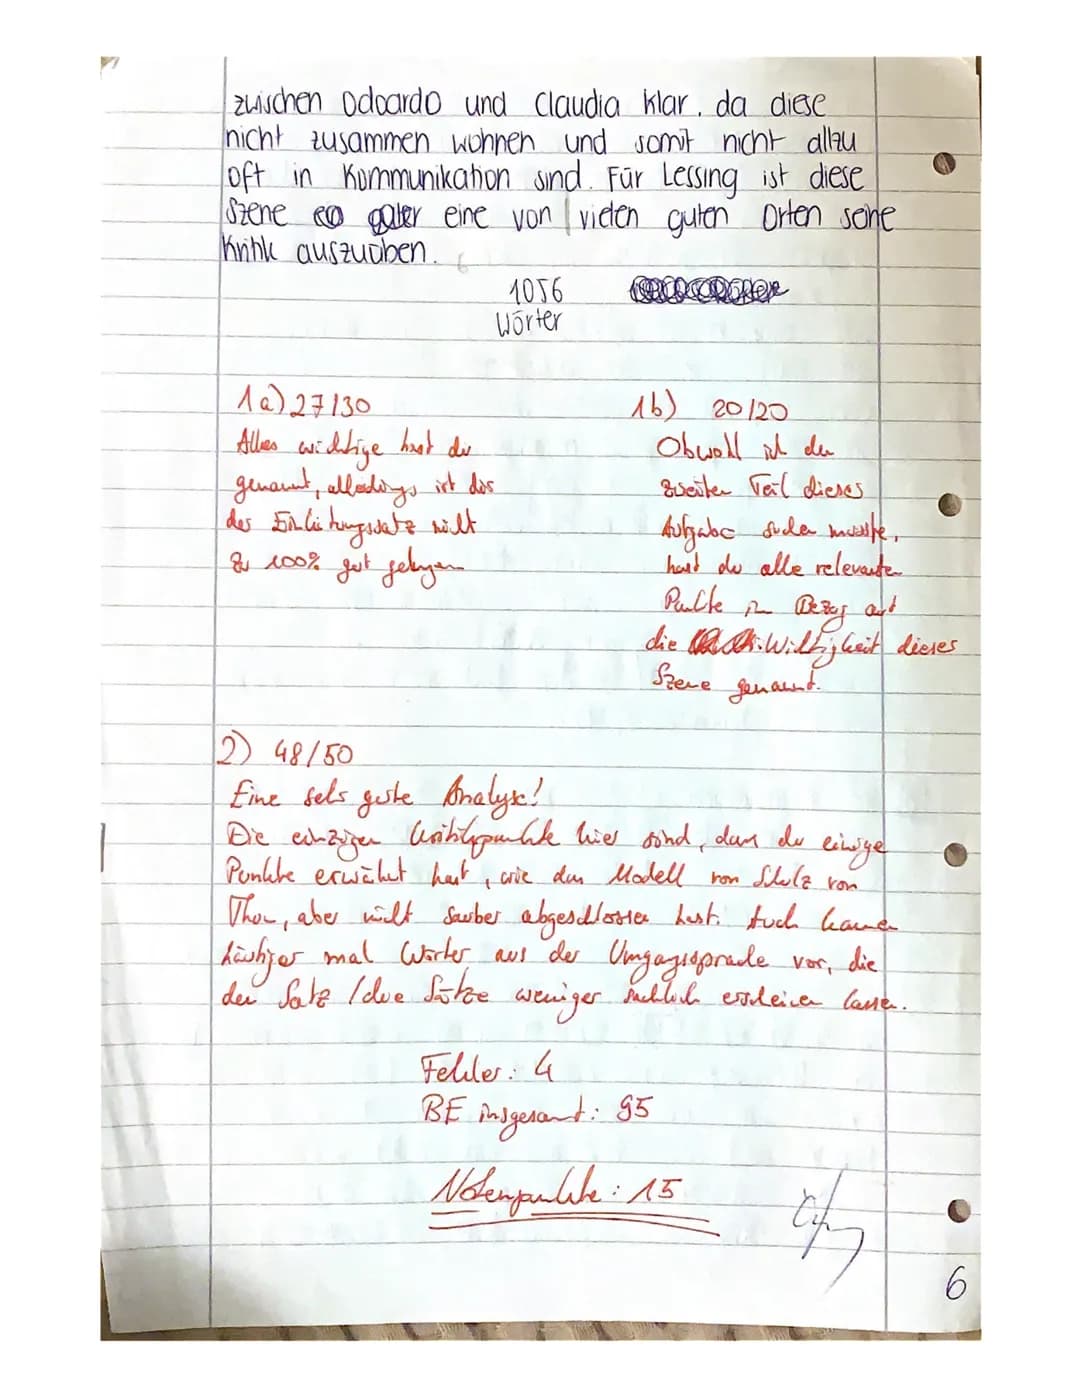 zwischen Odoardo und Claudia klar, da diese
nicht zusammen wohnen und somit nicht allzu
oft in Kommunikation sind. Für Lessing ist diese
Szene eine von vielen guten Orten seine
Kritik auszuüben.
1056
Wörter
1a) 27/30
Alles wichtige hast du
genannt, allerdings ist dir
der Einleitungssatz nicht
zu 100% gut gelungen
1b) 20/20
Obwohl ich den
zweiten Teil dieser
Aufgabe suchen musste,
hast du alle relevanten
Punkte in Bezug auf
die Wichtigkeit dieser
Szene genannt.
2) 48/50
Eine sehr gute Analyse!
Die einzigen Kritikpunkte hier sind, dass du einige
Punkte erwähnt hast, wie das Modell von Schulz von
Thun, aber nicht sauber abgeschlossen hast. Auch kamen
häufiger mal Wörter aus der Umgangssprache vor, die
den Satz / die Sätze weniger sachlich erscheinen lassen.
Fehler: 4
BE insgesamt: 95
Notenpunkte: 15
6